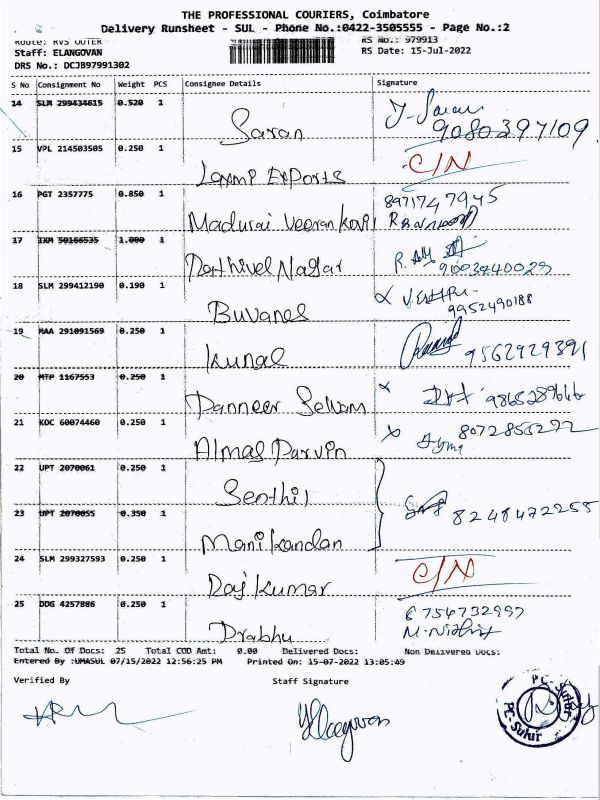 THE PROFESSIONAL COURIERS, Coimbatore
Delivery Runsheet - SUL - Phone No.:0422-3505555 - Page No.:2
Route: RVS OUTER RS No.: 979913
Staff: ELANGOVAN RS Date: 15-Jul-2022
DRS No.: DCJB97991302
S No Consignment No Weight PCS Consignee Details Signature
14 SLM 299434615 0.520 1 Saran J-Saran
9080397109
15 VPL 214503505 0.250 1 Laxmi Exports C/N
16 PGT 2357775 0.850 1 Madurai Veeran Kovil 8971747945
17 IXM 50166535 1.000 1 Nagar R.
9003440029
18 SLM 299412190 0.190 1 Buvanes
9952490188
19 MAA 291091569 0.250 1 Kunal 9562929391
20 MTP 1167553 0.250 1 Panneer Selvam
21 KOC 60074460 0.250 1 Almas Parvin
22 UPT 2070061 0.250 1 Senthil
23 UPT 2070055 0.350 1 Manikandan 8248472255
24 SLM 299327593 0.250 1 Raj Kumar C/N
25 DDG 4257886 0.250 1 Prabhu 6754732997
Total No. Of Docs: 25 Total COD Amt: 0.00 Delivered Docs: Non Delivered Docs:
Entered By :UMASUL 07/15/2022 12:56:25 PM Printed On: 15-07-2022 13:05:49
Verified By Staff Signature
PC-Sulur
PC-Sulur